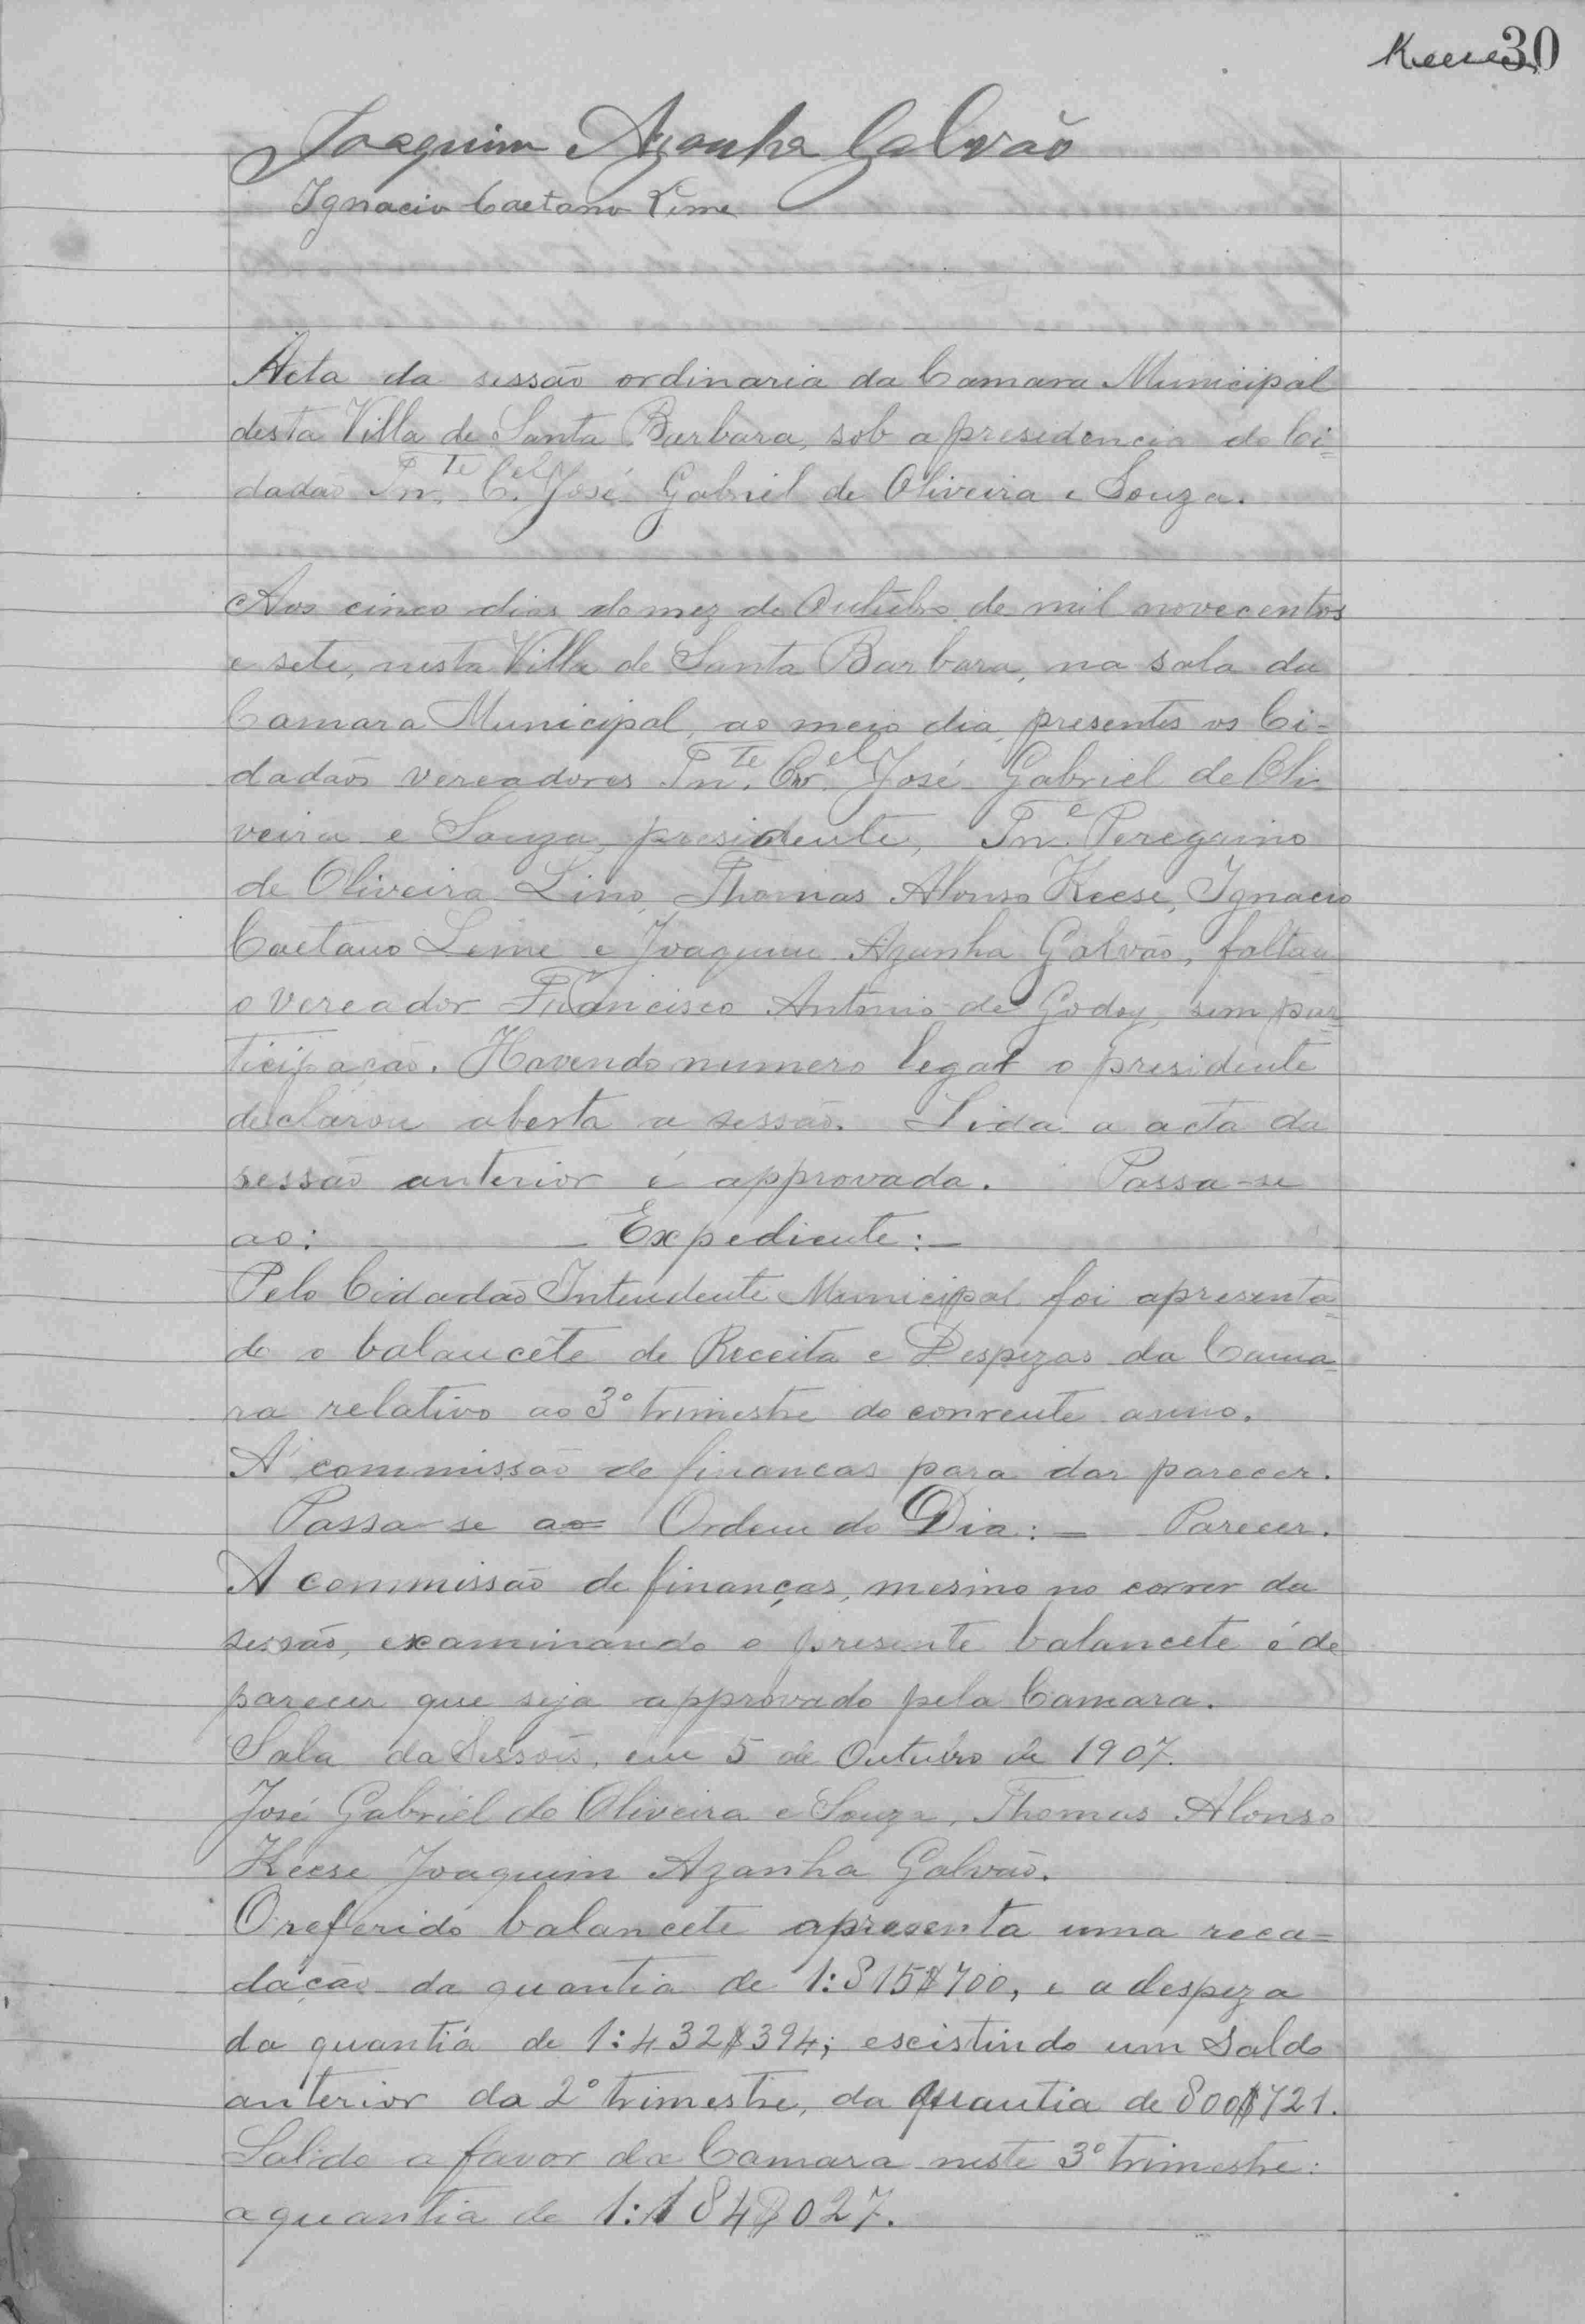 Keese 30
Joaquim Azanha Galvão
Ignacio Caetano Leme
Acta da sessão ordinaria da Camara Municipal
desta Villa de Santa Barbara, sob a presidencia do Ci=
dadão Tn.te C.el José Gabriel de Oliveira e Souza.
Aos cinco dias do mez de Outubro de mil novecentos
e sete, nesta Villa de Santa Barbara, na sala da
Camara Municipal, ao meio dia, presentes os Ci=
dadãos vereadores Tn.te Cor.el José Gabriel de Oli-
veira e Souza, presidente, Tn.e Peregrino
de Oliveira Lino, Thomas Alonso Keese, Ignacio
Caetano Leme e Joaquim Azanha Galvão, faltan
o vereador Francisco Antonio de Godoy, sem par=
ticipação. Havendo numero legal o presidente
declarou aberta a sessão. Lida a acta da
sessão anterior é approvada. Passa-se
ao: Expediente:
Pelo Cidadão Intendente Municipal foi apresenta=
do o balancête de Receita e Despezas da Cama=
ra relativo ao 3º trimestre do corrente anno.
A' commissão de financas para dar parecer.
Passa-se ao Ordem do Dia: = Parecer.
A commissão de finanças, mesmo no correr da
sessão, examinando o presente balancete é de
parecer que seja approvado pela Camara.
Sala da Sessões, em 5 de Outubro de 1907.
José Gabriel de Oliveira e Souza, Thomas Alonso
Keese Joaquim Azanha Galvão.
O referido balancete apresenta uma reca=
dação da quantia de 1:815$700, e a despeza
da quantia de 1:432$394; escistindo um Saldo
anterior da 2º trimestre, da quantia de 800$721.
Saldo a favor da Camara neste 3º trimestre:
a quantia de 1:184$027.